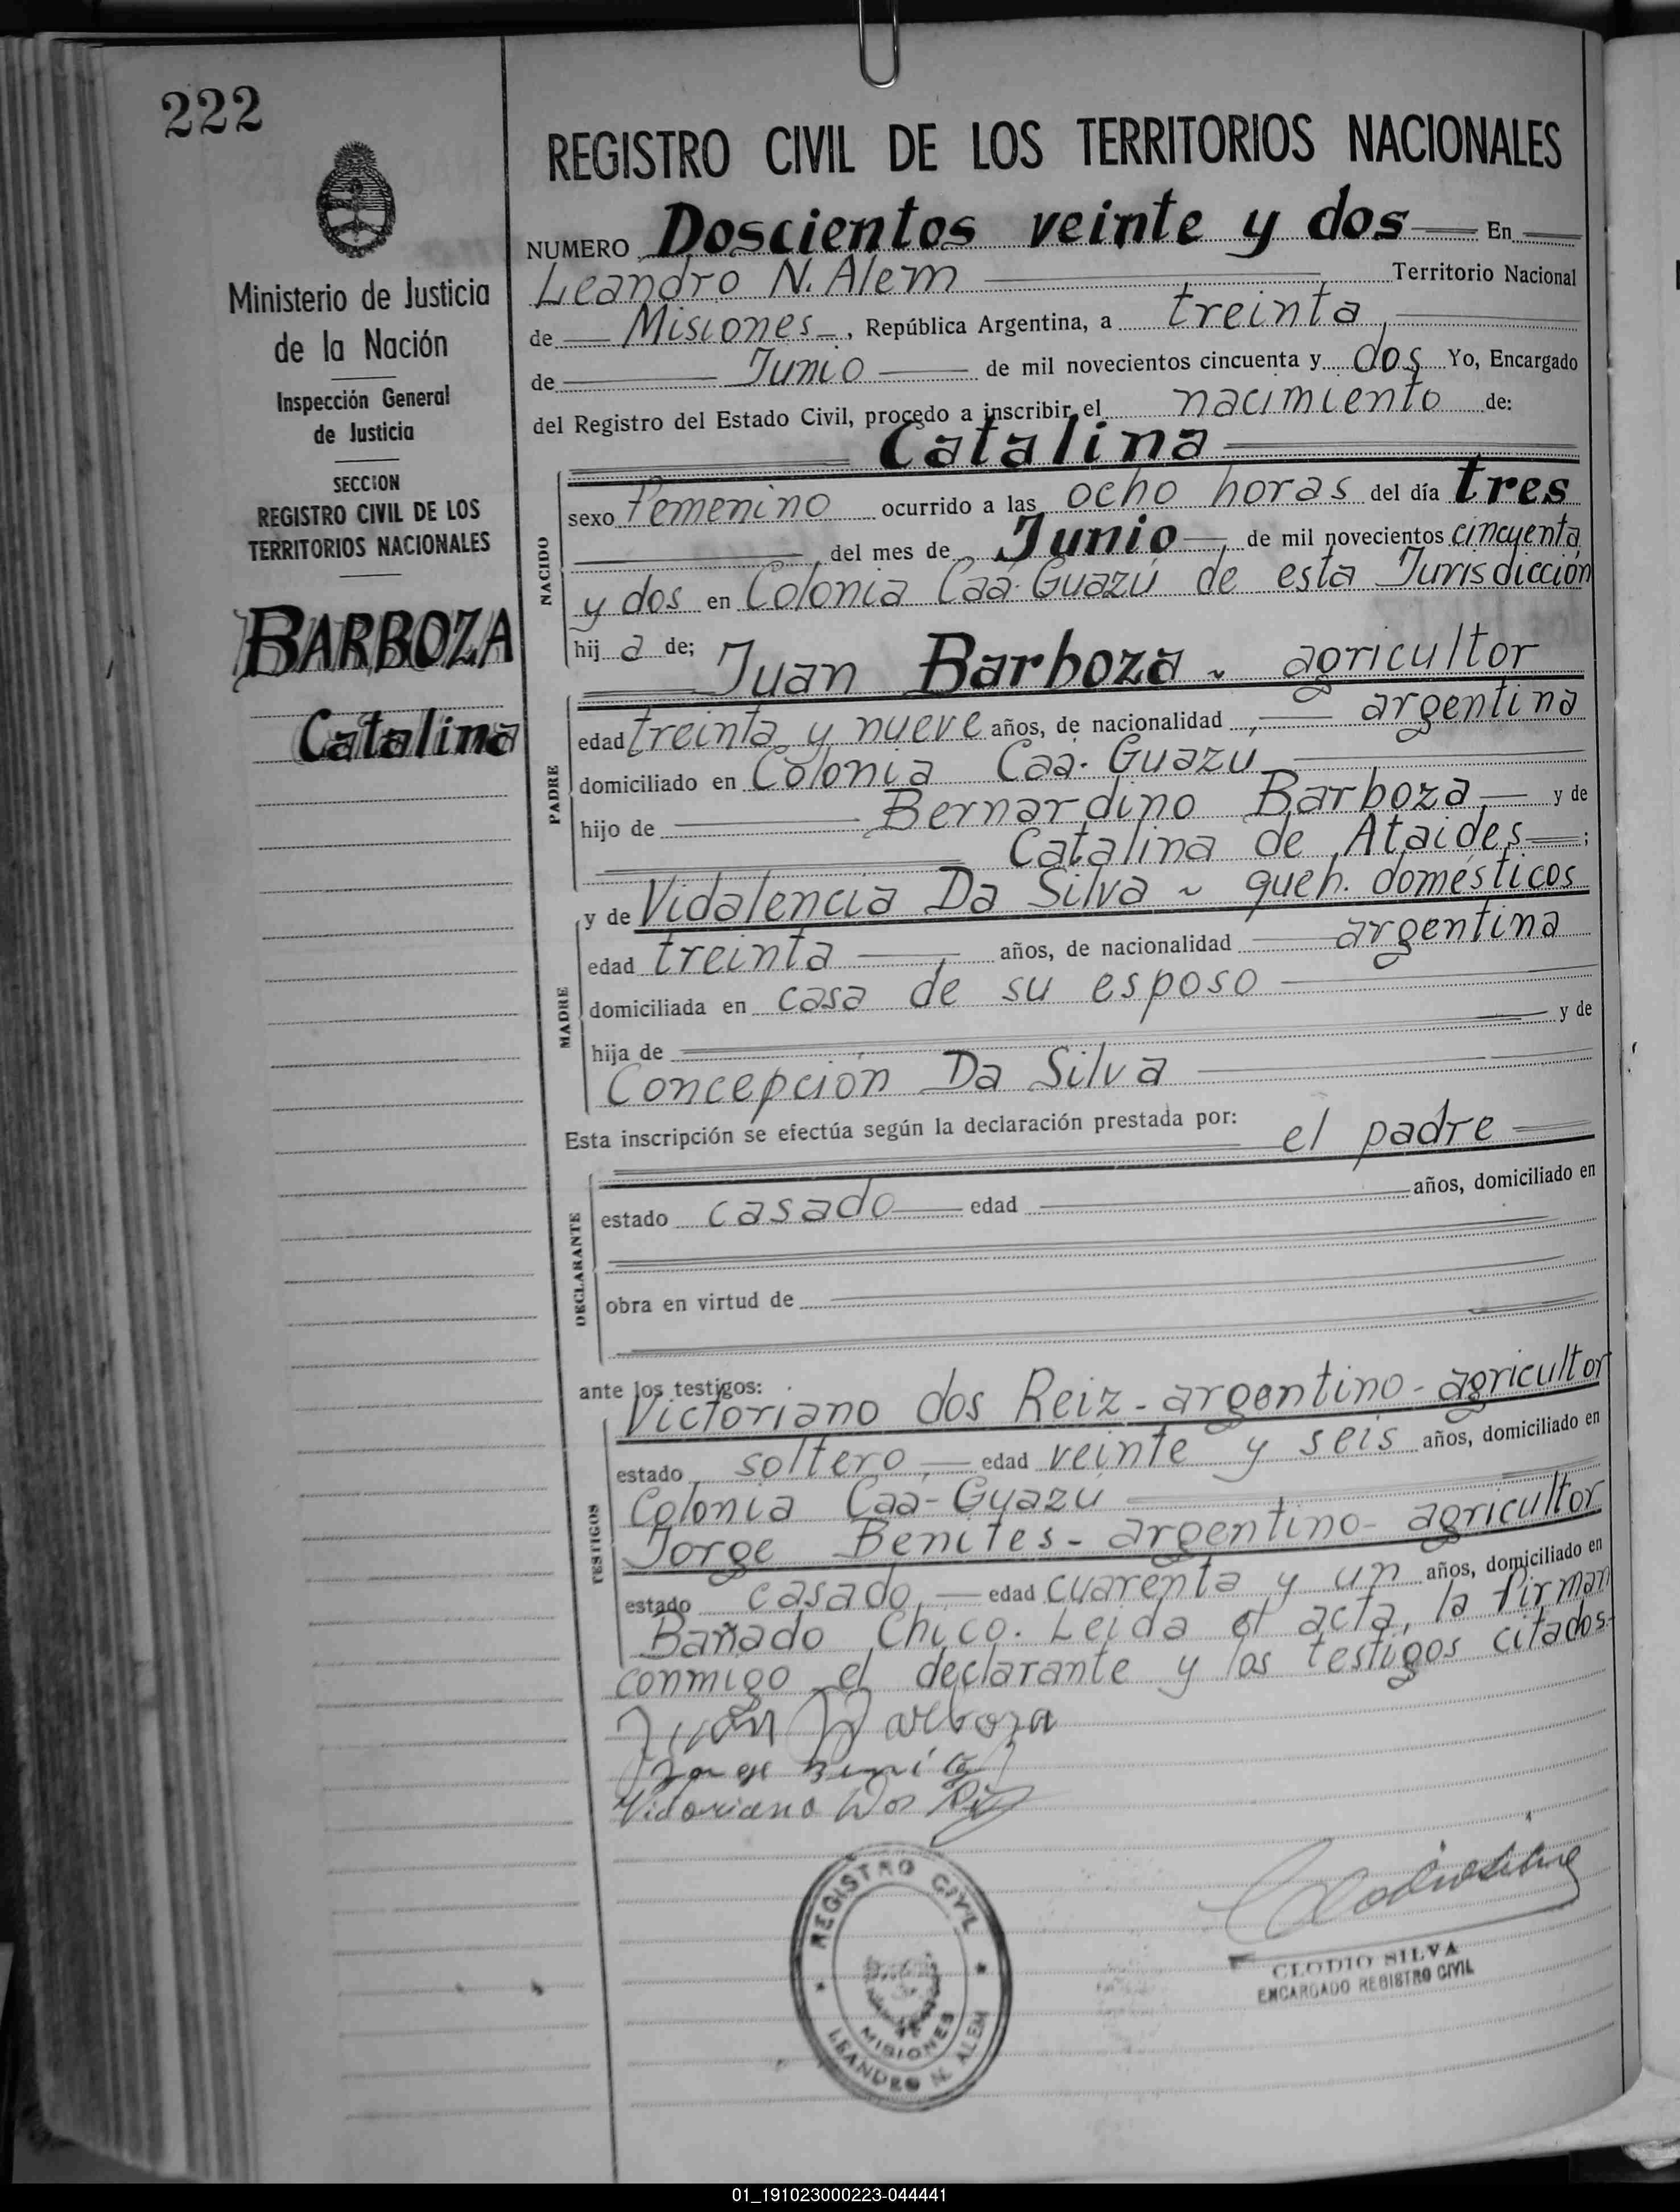 222
Ministerio de Justicia
de la Nación
Inspección General
de Justicia
SECCION
REGISTRO CIVIL DE LOS
TERRITORIOS NACIONALES
BARBOZA
Catalina
REGISTRO CIVIL DE LOS TERRITORIOS NACIONALES
NUMERO Doscientos veinte y dos En
Leandro N. Alem Territorio Nacional
de Misiones, República Argentina, a treinta,
de Junio de mil novecientos cincuenta y dos Yo, Encargado
del Registro del Estado Civil, procedo a inscribir el nacimiento de:
Catalina
NACIDO
sexo Femenino ocurrido a las ocho horas del día tres
del mes de Junio, de mil novecientos cincuenta
y dos en Colonia Caá-Guazú de esta Jurisdicción
hij a de;
Juan Barboza ~ agricultor
PADRE
edad treinta y nueve años, de nacionalidad argentina
domiciliado en Colonia Caa-Guazu
hijo de Bernardino Barboza, y de
Catalina de Ataides ;
MADRE
y de Vidalencia Da Silva ~ queh. domésticos
edad treinta, años, de nacionalidad argentina
domiciliada en casa de su esposo
hija de y de
Concepción Da Silva
Esta inscripción se efectúa según la declaración prestada por: el padre
DECLARANTE
estado casado edad años, domiciliado en
obra en virtud de
ante los testigos:
TESTIGOS
Victoriano dos Reiz - argentino - agricultor
estado soltero, edad veinte y seis años, domiciliado en
Colonia Caa-Guazu
Jorge Benites - argentino - agricultor
estado casado, edad cuarenta y un años, domiciliado en
Bañado Chico. Leida el acta, la firman
conmigo el declarante y los testigos citados.
Juan Barboza
Jorge
Victoriano Dos
REGISTRO CIVIL
MISIONES
LEANDRO N. ALEM
CLODIO SILVA
ENCARGADO REGISTRO CIVIL
01_191023000223-044441